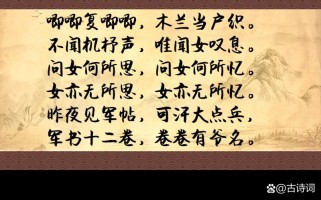 唧唧复唧唧，木兰当户织。
不闻机杼声，唯闻女叹息。
问女何所思，问女何所忆。
女亦无所思，女亦无所忆。
昨夜见军帖，可汗大点兵，
军书十二卷，卷卷有爷名。
@古诗词